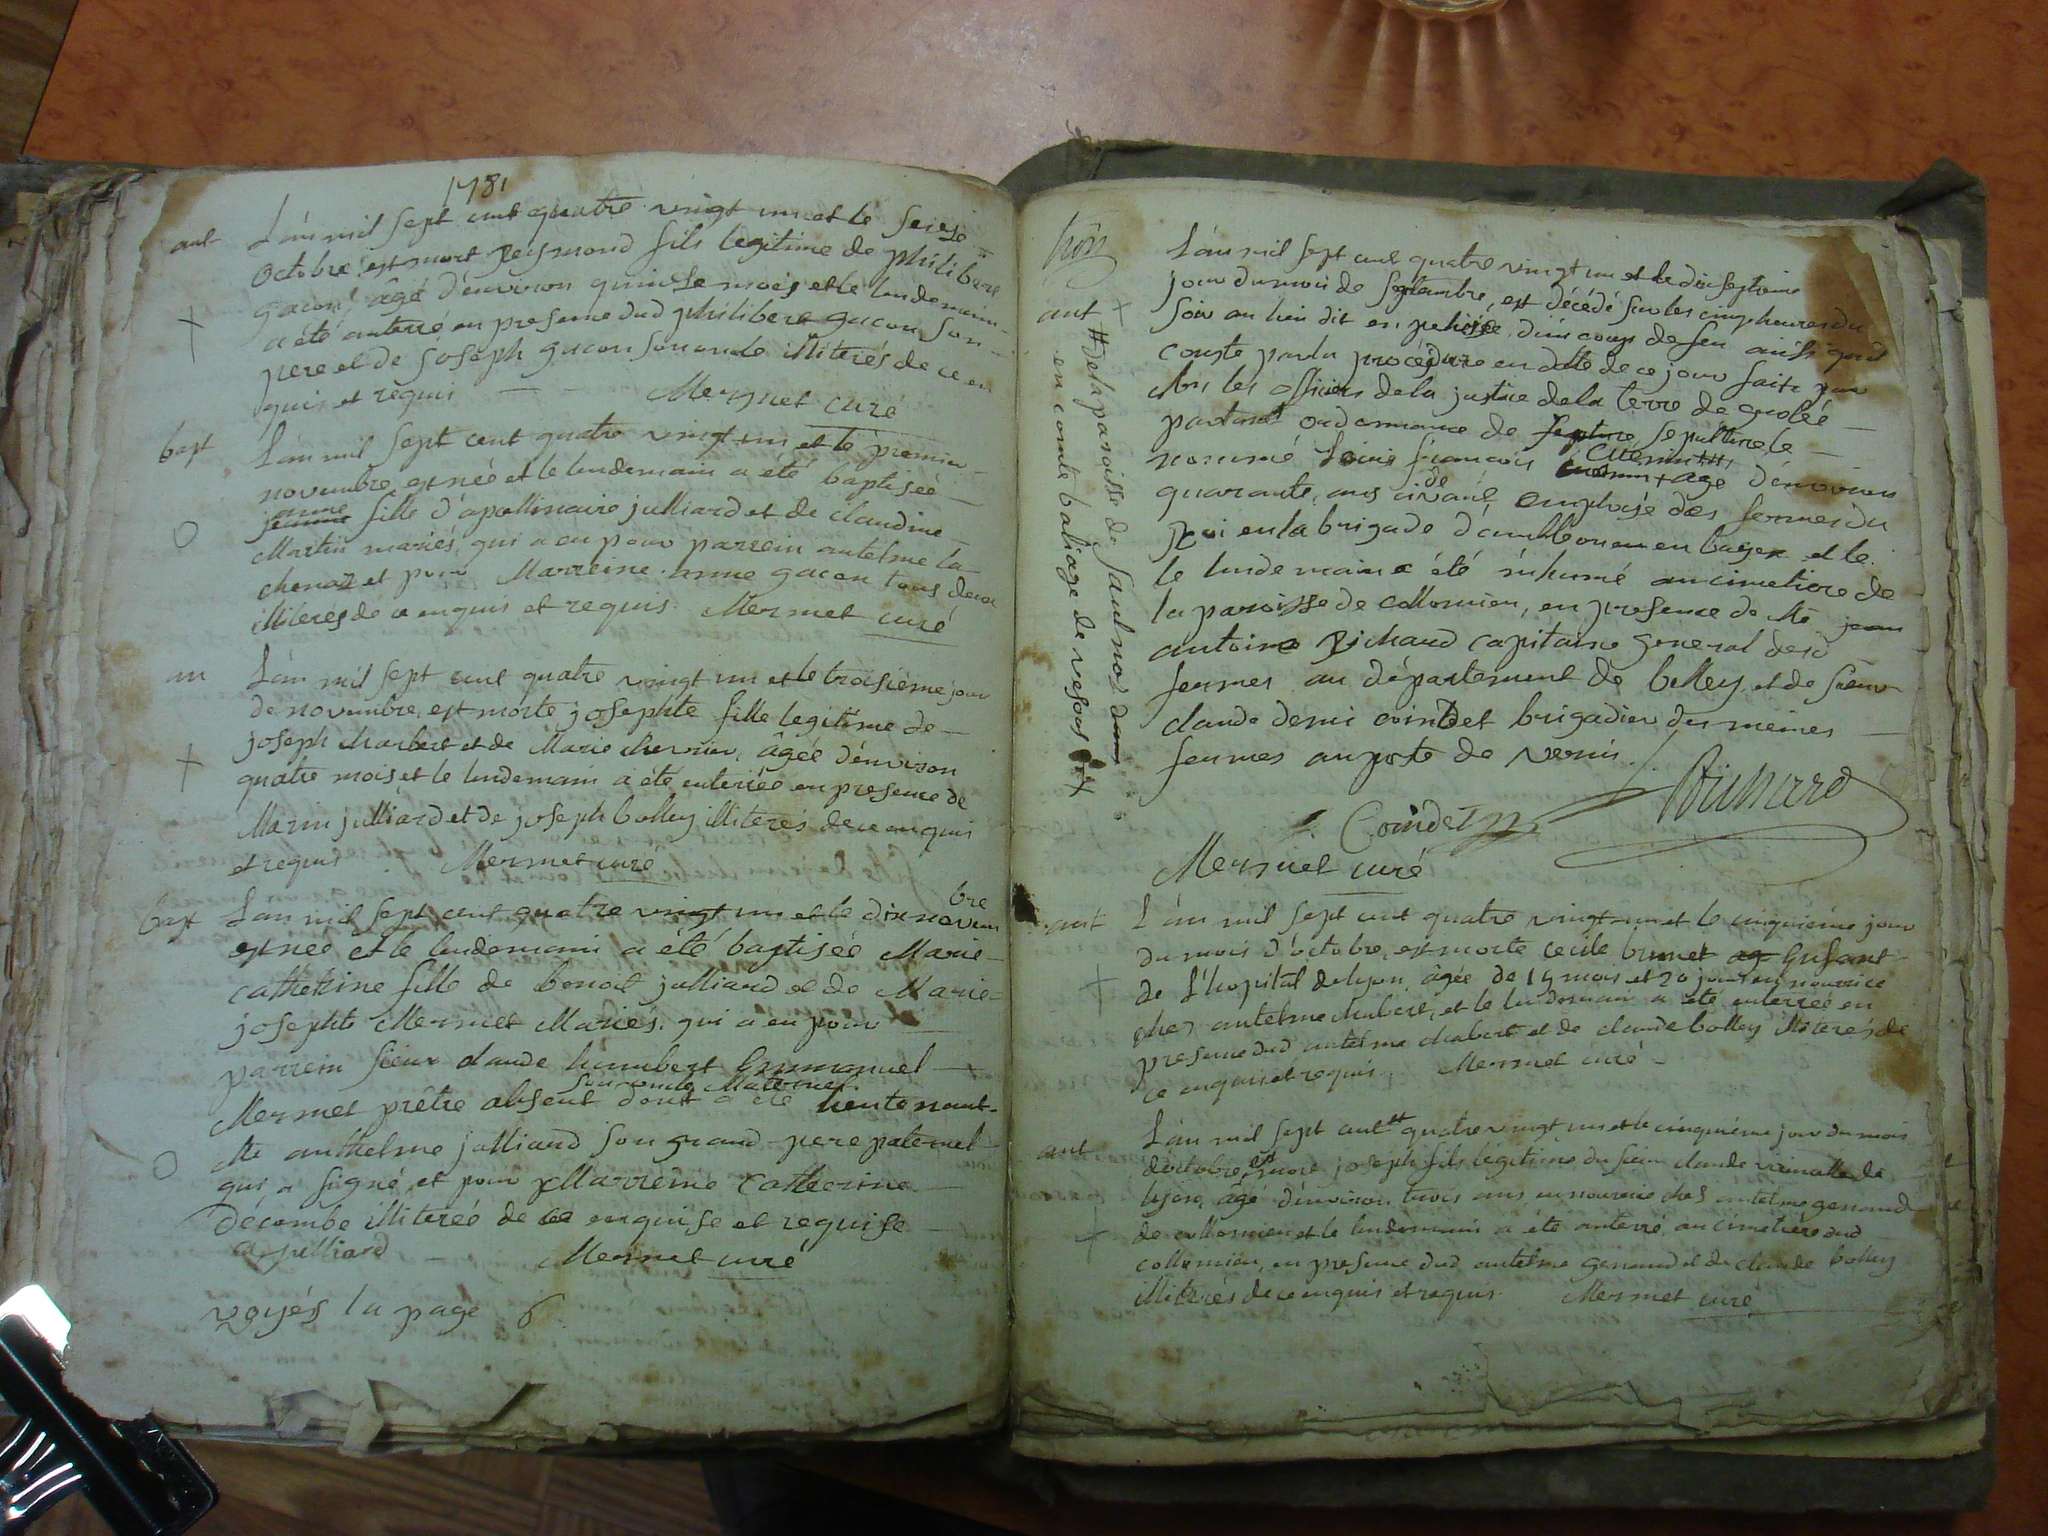 1781
ant L'an mil sept cent quatre vingt un et le seize
octobre est mort Reymond fils legitime de philibert
gacon, âgé d'environ quinse mois et le lendemain
a été anterré en presense dud philibert gacon son
pere et de joseph gacon son oncle illiterés de ce en
quis et requis Mermet curé
bapt L'an mil sept cent quatre vingt un et le premier
novembre est née et le lendemain a été baptisée
anne fille d'apollinaire julliard et de claudine
Martin mariés, qui a eu pour parrein antelme la
chenaz et pour Marreine anne gacon tous deux
illiterés de ce enquis et requis. Mermet curé
L'an mil sept cent quatre vingt un et le troisième jour
de novembre, est morte josephte fille legitime de
joseph charbert et de Marie chervier, âgée d'environ
quatre mois et le lendemain a été enterrée en presence de
Marin julliard et de joseph bolley illiterés de ce enquis
et requis Mermet curé
bapt L'an mil sept cent quatre vingt un et le dix novem
bre
est née et le lendemain a été baptisée Marie
catherine fille de benoit julliard et de Marie
josephte Mermet Mariés, qui a eu pour
parrein sieur claude humbert Emmanuel
son oncle Maternel
Mermet prêtre absent dont a été lieutenant
Me anthelme julliard son grand-pere paternel
qui a signé, et pour Marreine Catherine
décombe illiterée de ce enquise et requise
a julliard Mermet curé
voyés la page 6
L'an mil sept cent quatre vingt un et le dix septieme
jour du mois de septembre, est décédé sur les cinq heures du
soir au lieu dit en d'un coup de feu ainsi qu'il
conste par la procédure en datte de ce jour faite par
les officiers de la justice de la terre de grolée
portant ordonnance de sepulture le
nommé Louis françois âgé d'environ
quarante ans de employé des fermes du
Roi en la brigade en bugex et le
le lendemain a été inhumé au cimetiere de
la paroisse de collomieu, en presence de Me jean
antoine Richard capitaine general desd
fermes au département de belley et de sieur
claude demi cointdet brigadier des meines
fermes au poste de
ant ## de la paroisse de saulnot dans
en comté baliage de vesoul
Coindet Richard
Mermet curé
ant L'an mil sept cent quatre vingt un et le cinquième jour
du mois d'octobre, est morte cecile brunet Enfant
de l'hopital de lyon, âgée de 14 mois et 20 jours en nourrice
ches antelme chabert, et le lendemain a été enterrée en
presense dud antelme chabert et de claude bolley illiterés de
ce enquis et requis. Mermet curé
ant L'an mil sept cent quatre vingt un et le cinquième jour du mois
d'octobre, est mort joseph fils légitime du sieur claude de
lyon, âgé d'environ trois ans en nourrice ches antelme genaud
de collomieu et le lendemain a été anterré au cimetière dud
collomieu, en presense dud antelme genaud et de claude bolley
illiterés de ce enquis et requis Mermet curé